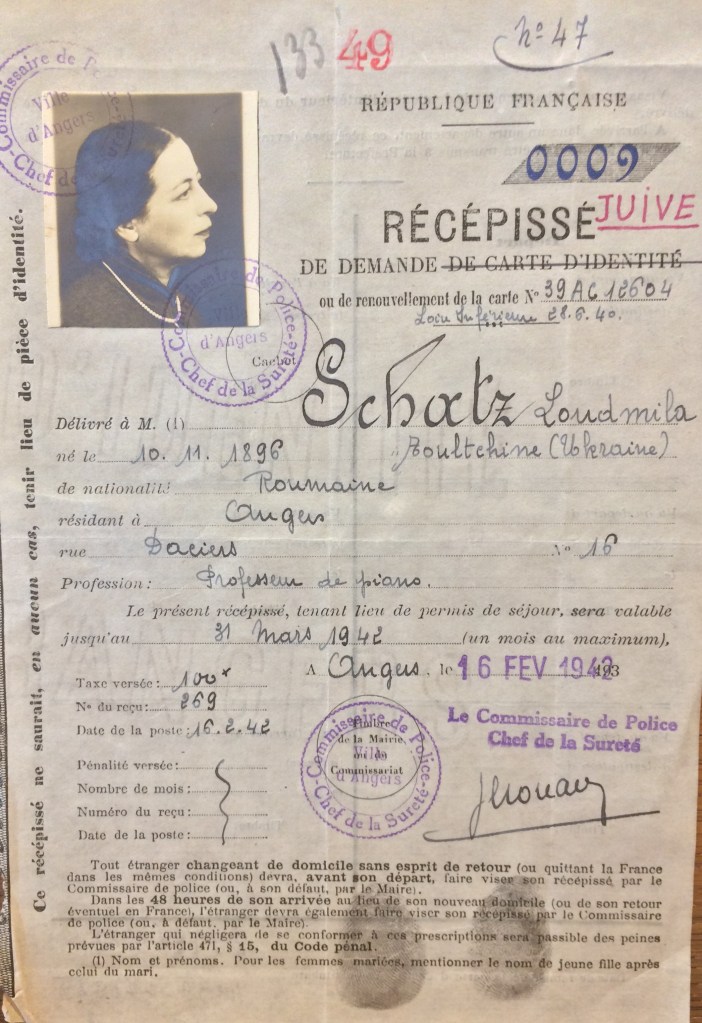 133 49 nº 47
RÉPUBLIQUE FRANÇAISE
0009
RÉCÉPISSÉ JUIVE
DE DEMANDE DE CARTE D'IDENTITÉ
ou de renouvellement de la carte Nº 39AC12604
Loire Inférieure 28.6.40.
Commissaire de Police
Ville
d'Angers
Chef de la Sureté
Commissaire de Police
Ville
d'Angers
Chef de la Sureté
Cachet
Délivré à M. (1) Schatz Loudmila
né le 10.11.1896 à Toultchine (Ukraine)
de nationalité Roumaine
résidant à Angers
rue Daciers Nº 16
Profession : Professeur de piano.
Le présent récépissé, tenant lieu de permis de séjour, sera valable
jusqu'au 31 Mars 1942 (un mois au maximum),
A Angers, le 16 FEV 1942 193
Taxe versée : 100
Nº du reçu : 269
Date de la poste : 16.2.42
Pénalité versée :
Nombre de mois :
Numéro du reçu :
Date de la poste :
Timbre
de la Mairie
ou du
Commissariat
Commissaire de Police
Ville
d'Angers
Chef de la Sureté
Le Commissaire de Police
Chef de la Sureté
Tout étranger changeant de domicile sans esprit de retour (ou quittant la France
dans les mêmes conditions) devra, avant son départ, faire viser son récépissé par le
Commissaire de police (ou, à son défaut, par le Maire).
Dans les 48 heures de son arrivée au lieu de son nouveau domicile (ou de son retour
éventuel en France), l'étranger devra également faire viser son récépissé par le Commissaire
de police (ou, à défaut, par le Maire).
L'étranger qui négligera de se conformer à ces prescriptions sera passible des peines
prévues par l'article 471, § 15, du Code pénal.
(1) Nom et prénoms. Pour les femmes mariées, mentionner le nom de jeune fille après
celui du mari.
Ce récépissé ne saurait, en aucun cas, tenir lieu de pièce d'identité.